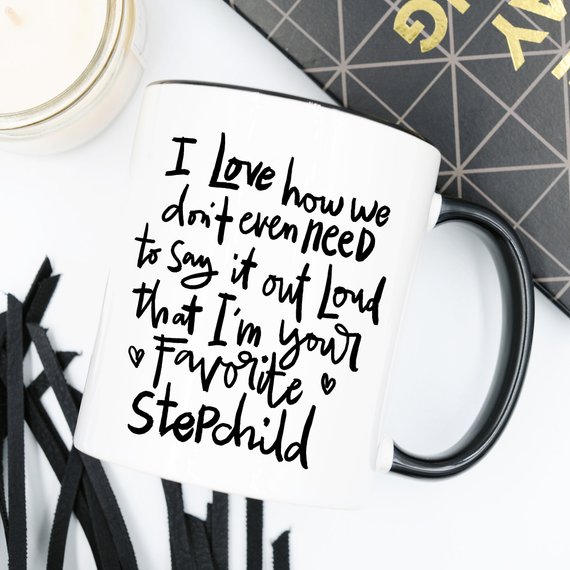 I Love how we
don't even NEED
to say it out Loud
that I'm your
Favorite
StePchild
AY
NG